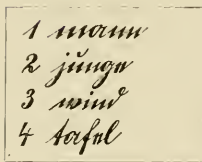 1 mann
2 junge
3 wind
4 tafel